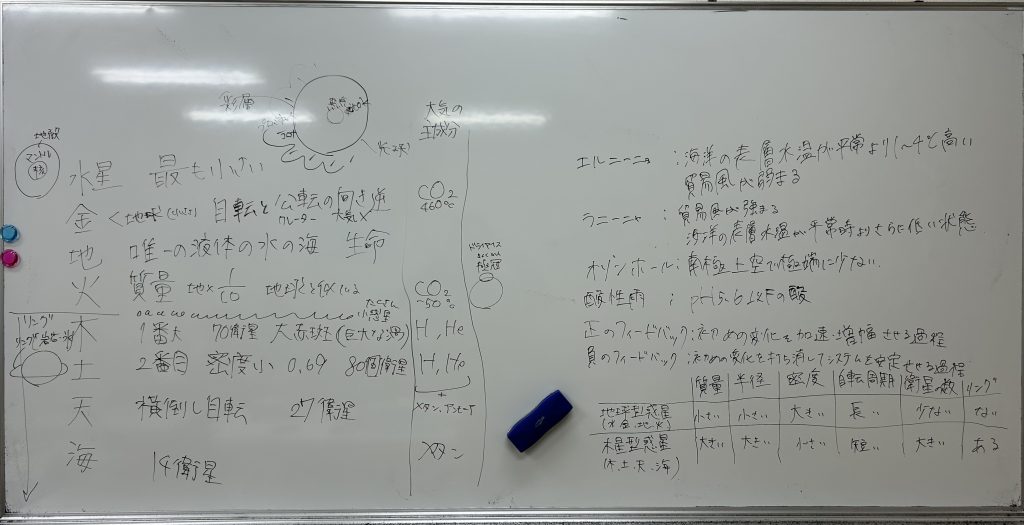 彩層
大気の
主成分
地殻
マントル
水星 最も小さい
金 < 地球 自転と公転の向き逆
クレーター 大気×
CO₂
460℃
地 唯一の液体の水の海 生命
火 質量 地× 1/10 地球と似ている
CO₂
~50℃
ドライアイス
極冠
たくさん
小惑星
リング
木 1番大 70衛星 大赤斑(巨大な渦) H, He
土 2番目 密度小 0.69 80個衛星 H, He
+
メタン、アンモニア
天 横倒し自転 27衛星
海 14衛星 メタン
エルニーニョ :海洋の表層水温が平常より1~4℃高い
貿易風が弱まる
ラニーニャ : 貿易風が強まる
海洋の表層水温が平常時よりさらに低い状態
オゾンホール:南極上空で極端に少ない
酸性雨 : pH5.6以下の酸
正のフィードバック:初めの変化を加速・増幅させる過程
負のフィードバック:初めの変化を打ち消してシステムを安定させる過程
質量 半径 密度 自転周期 衛星の数 リング
地球型惑星 小さい 小さい 大きい 長い 少ない ない
(水、金、地、火)
木星型惑星 大きい 大きい 小さい 短い 大きい ある
(木、土、天、海)